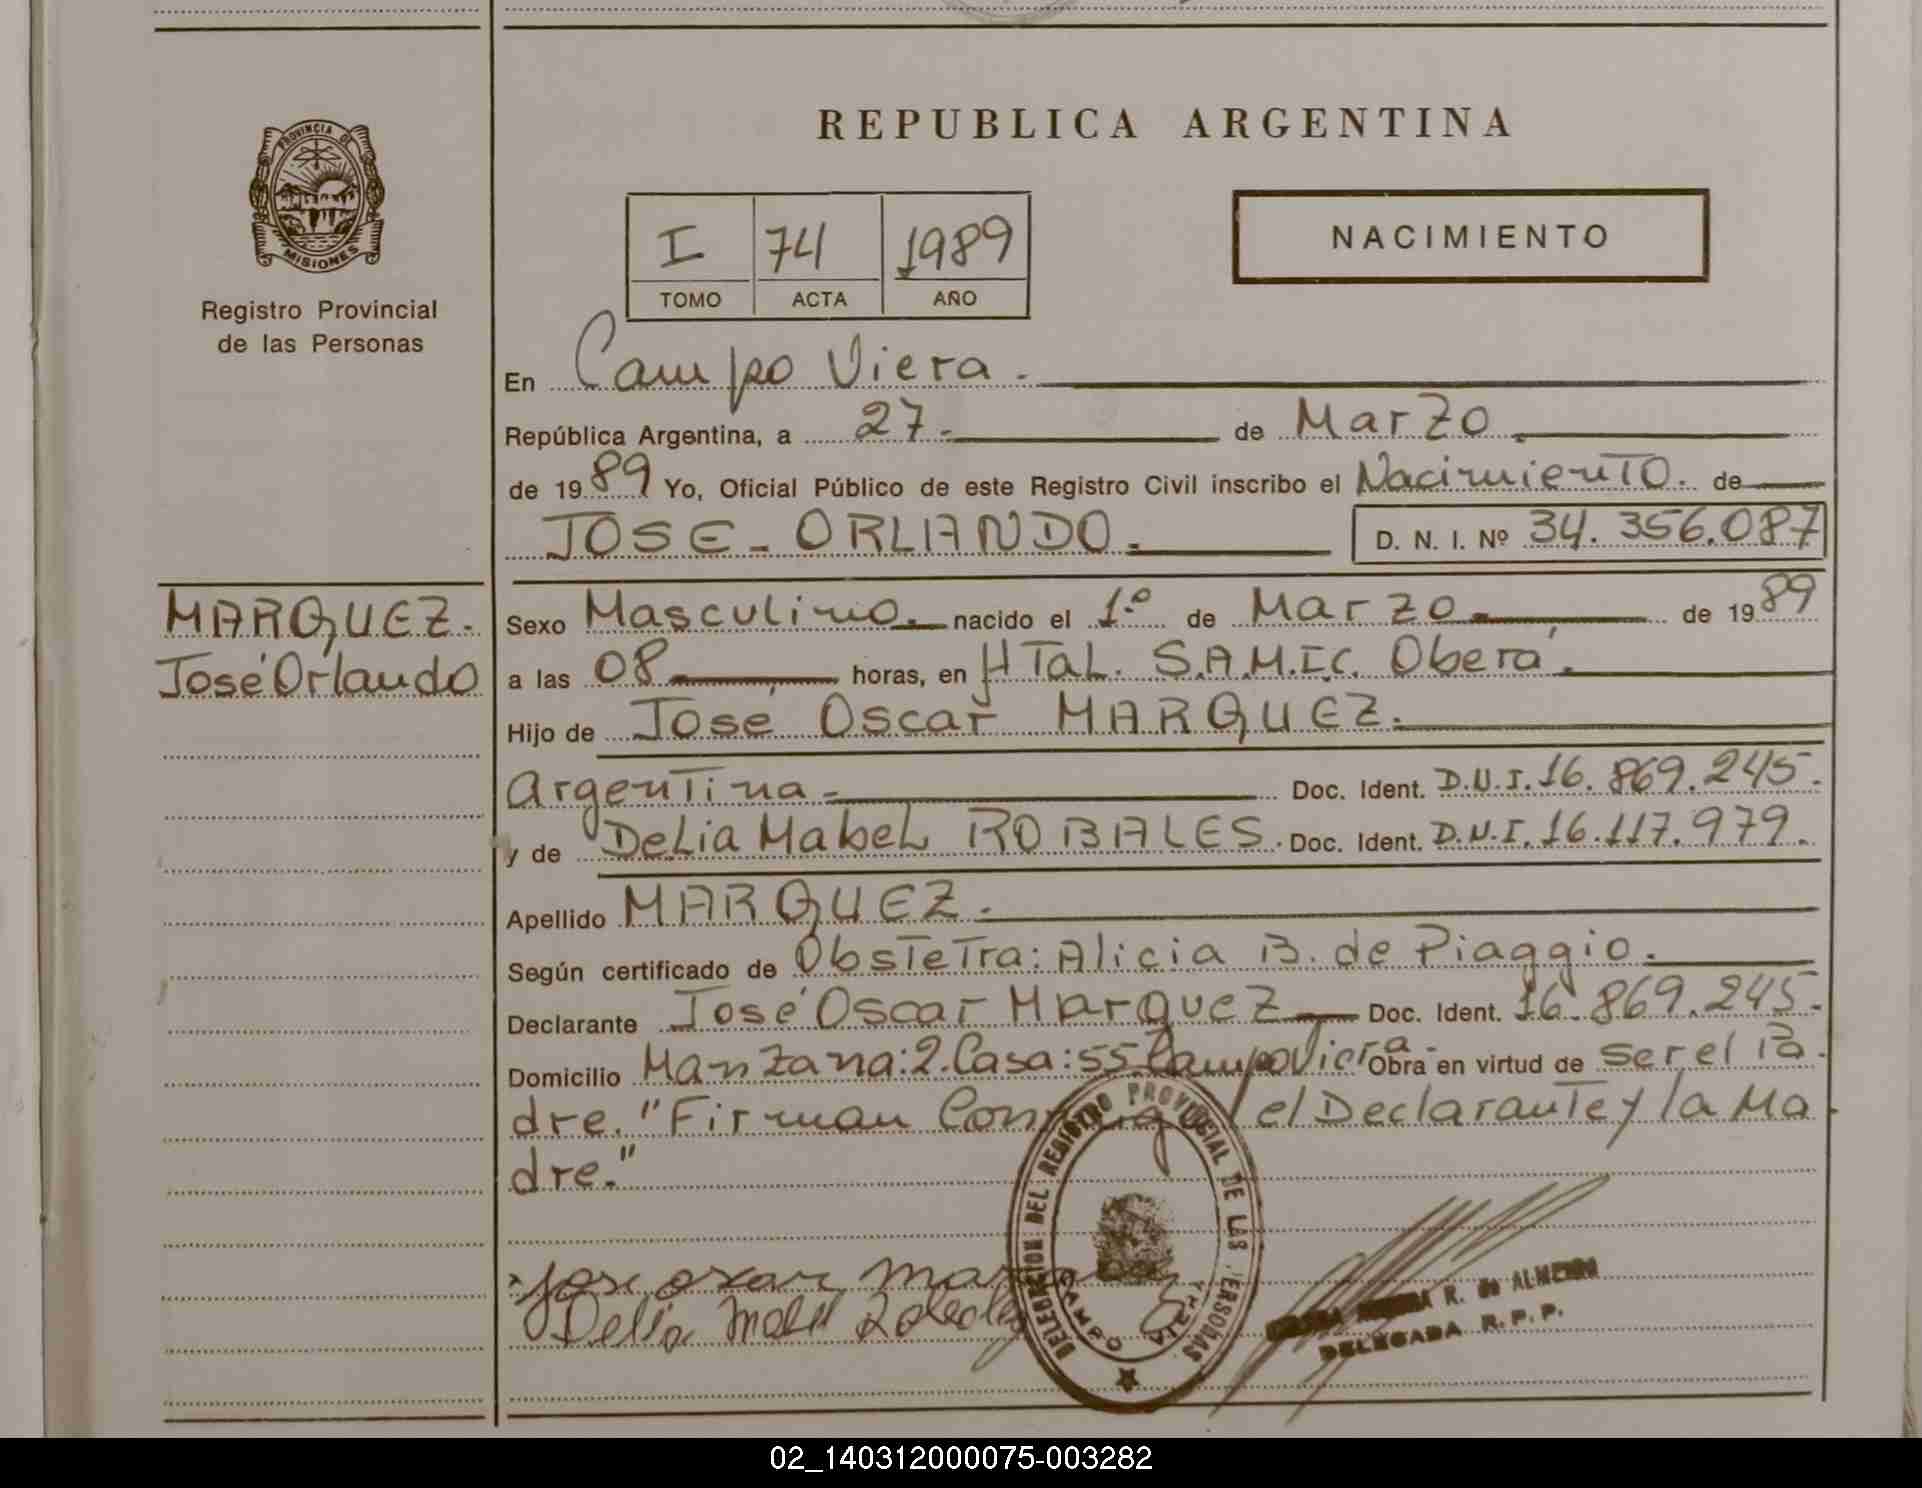 REPUBLICA ARGENTINA
PROVINCIA DE
MISIONES
Registro Provincial
de las Personas
I 74 1989
TOMO ACTA AÑO
NACIMIENTO
En Campo Viera.
República Argentina, a 27. de Marzo
de 1989 Yo, Oficial Público de este Registro Civil inscribo el Nacimiento. de
JOSE - ORLANDO. D. N. I. Nº 34.356.087
MARQUEZ.
José Orlando
Sexo Masculino. nacido el 1º de Marzo de 1989
a las 08 horas, en HTal. S.A.M.I.C. Oberá.
Hijo de José Oscar MARQUEZ.
Argentina - Doc. Ident. D.N.I. 16.869.245.
y de Delia Mabel ROBALES. Doc. Ident. D.N.I. 16.117.979.
Apellido MARQUEZ.
Según certificado de Obstetra: Alicia B. de Piaggio.
Declarante José Oscar Marquez Doc. Ident. 16.869.245.
Domicilio Manzana: 2. Casa: 55. Campo Viera - Obra en virtud de ser el Pa
dre. "Firman Conmigo el Declarante y la Ma
dre."
DELEGACION DEL REGISTRO PROVINCIAL DE LAS PERSONAS
CAMPO VIERA
jose oscar
Delia
R. de ALMEIDA
DELEGADA R.P.P.
02_140312000075-003282